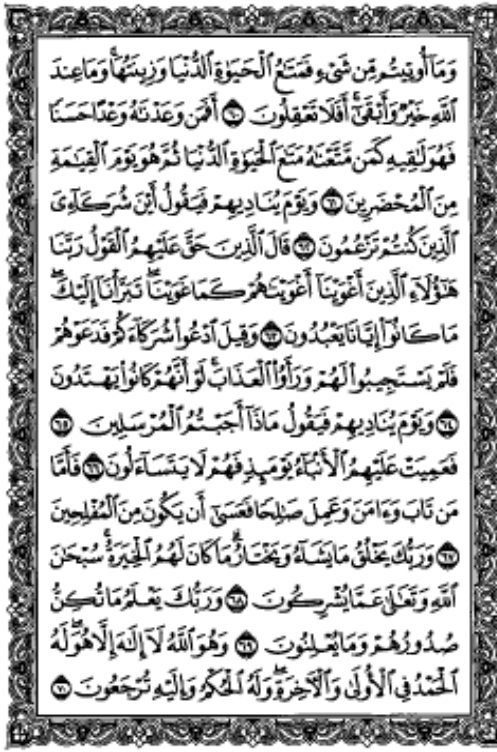 وَمَآ أُوتِيتُم مِّن شَىْءٍ فَمَتَٰعُ ٱلْحَيَوٰةِ ٱلدُّنْيَا وَزِينَتُهَا ۚ وَمَا عِندَ
ٱللَّهِ خَيْرٌ وَأَبْقَىٰٓ ۚ أَفَلَا تَعْقِلُونَ ٦٠ أَفَمَن وَعَدْنَٰهُ وَعْدًا حَسَنًا
فَهُوَ لَٰقِيهِ كَمَن مَّتَّعْنَٰهُ مَتَٰعَ ٱلْحَيَوٰةِ ٱلدُّنْيَا ثُمَّ هُوَ يَوْمَ ٱلْقِيَٰمَةِ
مِنَ ٱلْمُحْضَرِينَ ٦١ وَيَوْمَ يُنَادِيهِمْ فَيَقُولُ أَيْنَ شُرَكَآءِىَ
ٱلَّذِينَ كُنتُمْ تَزْعُمُونَ ٦٢ قَالَ ٱلَّذِينَ حَقَّ عَلَيْهِمُ ٱلْقَوْلُ رَبَّنَا
هَٰٓؤُلَآءِ ٱلَّذِينَ أَغْوَيْنَآ أَغْوَيْنَٰهُمْ كَمَا غَوَيْنَا ۖ تَبَرَّأْنَآ إِلَيْكَ ۖ
مَا كَانُوٓا۟ إِيَّانَا يَعْبُدُونَ ٦٣ وَقِيلَ ٱدْعُوا۟ شُرَكَآءَكُمْ فَدَعَوْهُمْ
فَلَمْ يَسْتَجِيبُوا۟ لَهُمْ وَرَأَوُا۟ ٱلْعَذَابَ ۚ لَوْ أَنَّهُمْ كَانُوا۟ يَهْتَدُونَ
٦٤ وَيَوْمَ يُنَادِيهِمْ فَيَقُولُ مَاذَآ أَجَبْتُمُ ٱلْمُرْسَلِينَ ٦٥
فَعَمِيَتْ عَلَيْهِمُ ٱلْأَنۢبَآءُ يَوْمَئِذٍ فَهُمْ لَا يَتَسَآءَلُونَ ٦٦ فَأَمَّا
مَن تَابَ وَءَامَنَ وَعَمِلَ صَٰلِحًا فَعَسَىٰٓ أَن يَكُونَ مِنَ ٱلْمُفْلِحِينَ
٦٧ وَرَبُّكَ يَخْلُقُ مَا يَشَآءُ وَيَخْتَارُ ۗ مَا كَانَ لَهُمُ ٱلْخِيَرَةُ ۚ سُبْحَٰنَ
ٱللَّهِ وَتَعَٰلَىٰ عَمَّا يُشْرِكُونَ ٦٨ وَرَبُّكَ يَعْلَمُ مَا تُكِنُّ
صُدُورُهُمْ وَمَا يُعْلِنُونَ ٦٩ وَهُوَ ٱللَّهُ لَآ إِلَٰهَ إِلَّا هُوَ ۖ لَهُ
ٱلْحَمْدُ فِى ٱلْأُولَىٰ وَٱلْءَاخِرَةِ ۖ وَلَهُ ٱلْحُكْمُ وَإِلَيْهِ تُرْجَعُونَ ٧٠